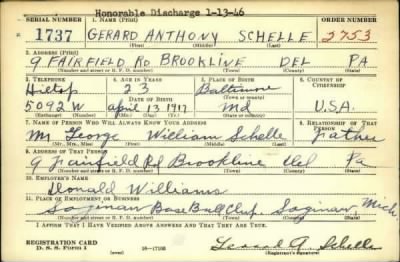 Honorable Discharge 1-13-46
SERIAL NUMBER 1. NAME (Print) ORDER NUMBER
1737 GERARD ANTHONY SCHELLE 2753
(First) (Middle) (Last)
2. ADDRESS (Print)
9 FAIRFIELD RD BROOKLINE DEL PA
(Number and street or R. F. D. number) (Town) (County) (State)
3. TELEPHONE 4. AGE IN YEARS 5. PLACE OF BIRTH 6. COUNTRY OF CITIZENSHIP
Hiltop 23 Baltimore
DATE OF BIRTH (Town or county)
5092 W April 13 1917 Md U.S.A.
(Exchange) (Number) (Mo.) (Day) (Yr.) (State or country)
7. NAME OF PERSON WHO WILL ALWAYS KNOW YOUR ADDRESS 8. RELATIONSHIP OF THAT PERSON
Mr George William Schelle Father
(Mr., Mrs., Miss) (First) (Middle) (Last)
9. ADDRESS OF THAT PERSON
9 Fairfield Rd Brookline Del Pa
(Number and street or R. F. D. number) (Town) (County) (State)
10. EMPLOYER'S NAME
Donald Williams
11. PLACE OF EMPLOYMENT OR BUSINESS
Saginaw Base Ball Club, Saginaw, Mich
(Number and street or R. F. D. number) (Town) (County) (State)
I AFFIRM THAT I HAVE VERIFIED ABOVE ANSWERS AND THAT THEY ARE TRUE.
REGISTRATION CARD
D. S. S. Form 1 (over) 16-17105 Gerard A. Schelle